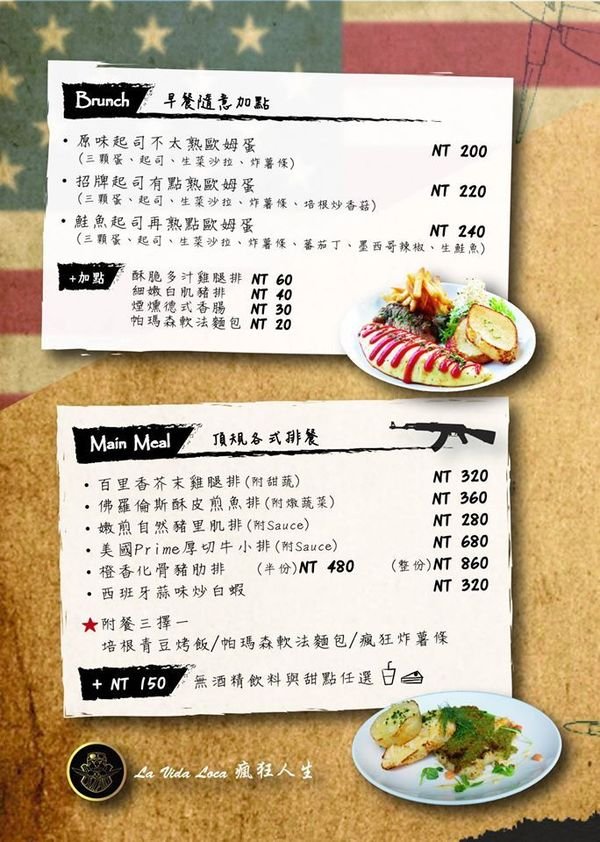 Brunch 早餐隨意加點
• 原味起司不太熟歐姆蛋 NT 200
(三顆蛋、起司、生菜沙拉、炸薯條)
• 招牌起司有點熟歐姆蛋 NT 220
(三顆蛋、起司、生菜沙拉、炸薯條、培根炒香菇)
• 鮭魚起司再熟點歐姆蛋 NT 240
(三顆蛋、起司、生菜沙拉、炸薯條、蕃茄丁、墨西哥辣椒、生鮭魚)
+加點 酥脆多汁雞腿排 NT 60
細嫩白肌豬排 NT 40
煙燻德式香腸 NT 30
帕瑪森軟法麵包 NT 20
Main Meal 頂規各式排餐
• 百里香芥末雞腿排(附甜蔬) NT 320
• 佛羅倫斯酥皮煎魚排(附燉蔬菜) NT 360
• 嫩煎自然豬里肌排(附Sauce) NT 280
• 美國Prime厚切牛小排(附Sauce) NT 680
• 橙香化骨豬肋排 (半份)NT 480 (整份)NT 860
• 西班牙蒜味炒白蝦 NT 320
★附餐三擇一
培根青豆烤飯/帕瑪森軟法麵包/瘋狂炸薯條
+ NT 150 無酒精飲料與甜點任選
La Vida Loca 瘋狂人生